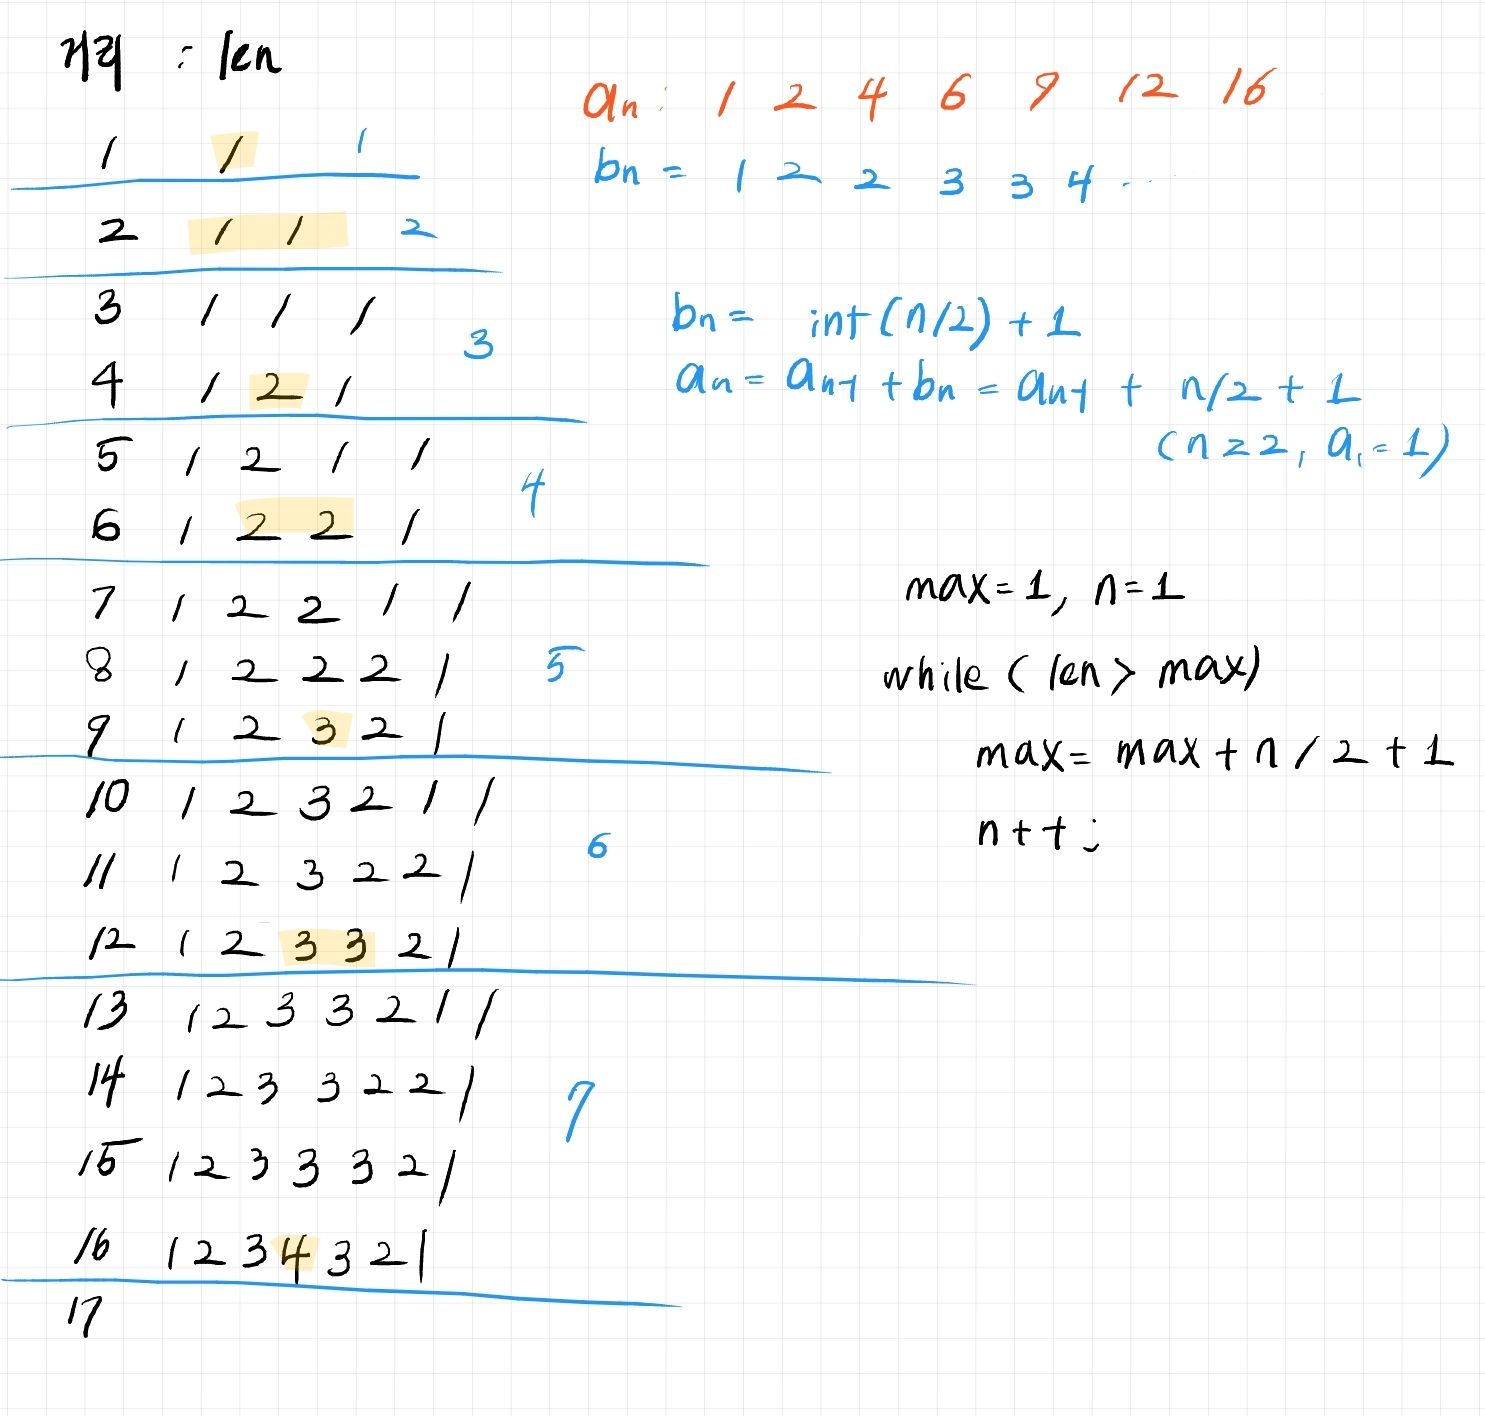 거리 : len
1 1 1
2 1 1 2
3 1 1 1
3
4 1 2 1
5 1 2 1 1
4
6 1 2 2 1
7 1 2 2 1 1
8 1 2 2 2 1 5
9 1 2 3 2 1
10 1 2 3 2 1 1
6
11 1 2 3 2 2 1
12 1 2 3 3 2 1
13 1 2 3 3 2 1 1
14 1 2 3 3 2 2 1
7
15 1 2 3 3 3 2 1
16 1 2 3 4 3 2 1
17
an: 1 2 4 6 9 12 16
bn = 1 2 2 3 3 4 ...
bn = int(n/2) + 1
an = an-1 + bn = an-1 + n/2 + 1
(n≥2, a1=1)
max=1, n=1
while ( len > max)
max= max + n / 2 + 1
n++;